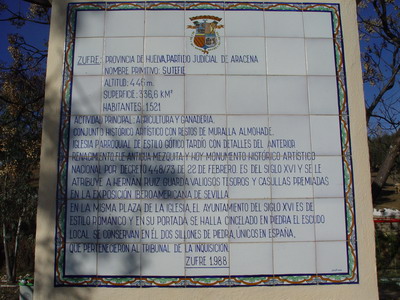 ZUFRE: PROVINCIA DE HUELVA, PARTIDO JUDICIAL DE ARACENA
NOMBRE PRIMITIVO: SUTEFIE
ALTITUD: 446 m.
SUPERFICIE: 336,6 KM²
HABITANTES: 1.521
ACTIVIDAD PRINCIPAL: AGRICULTURA Y GANADERIA.
CONJUNTO HISTORICO ARTISTICO CON RESTOS DE MURALLA ALMOHADE.
IGLESIA PARROQUIAL DE ESTILO GÓTICO TARDIO CON DETALLES DEL ANTERIOR
RENACIMIENTO, FUE ANTIGUA MEZQUITA Y HOY MONUMENTO HISTÓRICO ARTISTICO
NACIONAL POR DECRETO 448/73 DE 22 DE FEBRERO. ES DEL SIGLO XVI Y SE LE
ATRIBUYE A HERNAN RUIZ. GUARDA VALIOSOS TESOROS Y CASULLAS PREMIADAS
EN LA EXPOSICION IBEROAMERICANA DE SEVILLA.
EN LA MISMA PLAZA DE LA IGLESIA, EL AYUNTAMIENTO DEL SIGLO XVI ES DE
ESTILO ROMANICO Y EN SU PORTADA SE HALLA CINCELADO EN PIEDRA EL ESCUDO
LOCAL. SE CONSERVAN EN EL DOS SILLONES DE PIEDRA, UNICOS EN ESPAÑA,
QUE PERTENECIERON AL TRIBUNAL DE LA INQUISICION.
ZUFRE 1.988